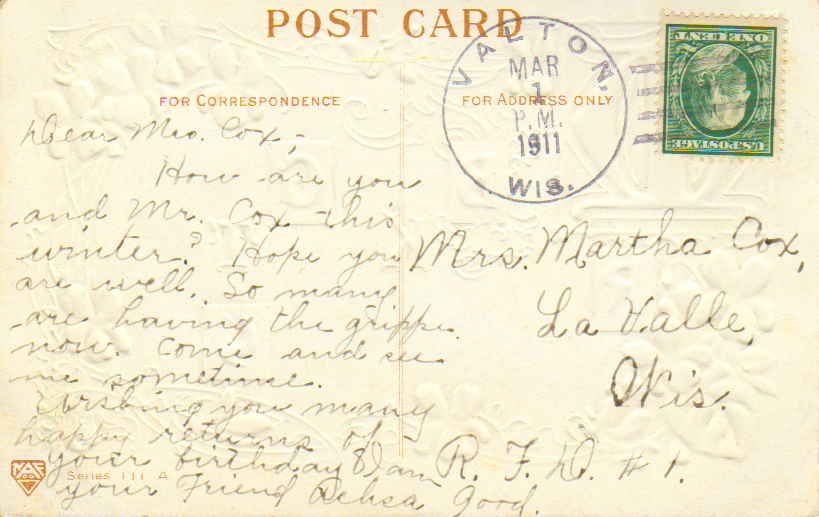 POST CARD
VALTON,
MAR
1
P.M.
1911
WIS.
ONE CENT
U.S. POSTAGE
FOR CORRESPONDENCE
FOR ADDRESS ONLY
Dear Mrs. Cox,-
How are you
and Mr. Cox this
winter? Hope you
are well. So many
are having the grippe
now. Come and see
me sometime.
Wishing you many
happy returns of
your birthday I am
your Friend Good.
Mrs. Martha Cox,
La Valle,
Wis.
R. F. D. # 1.
Series 111 A